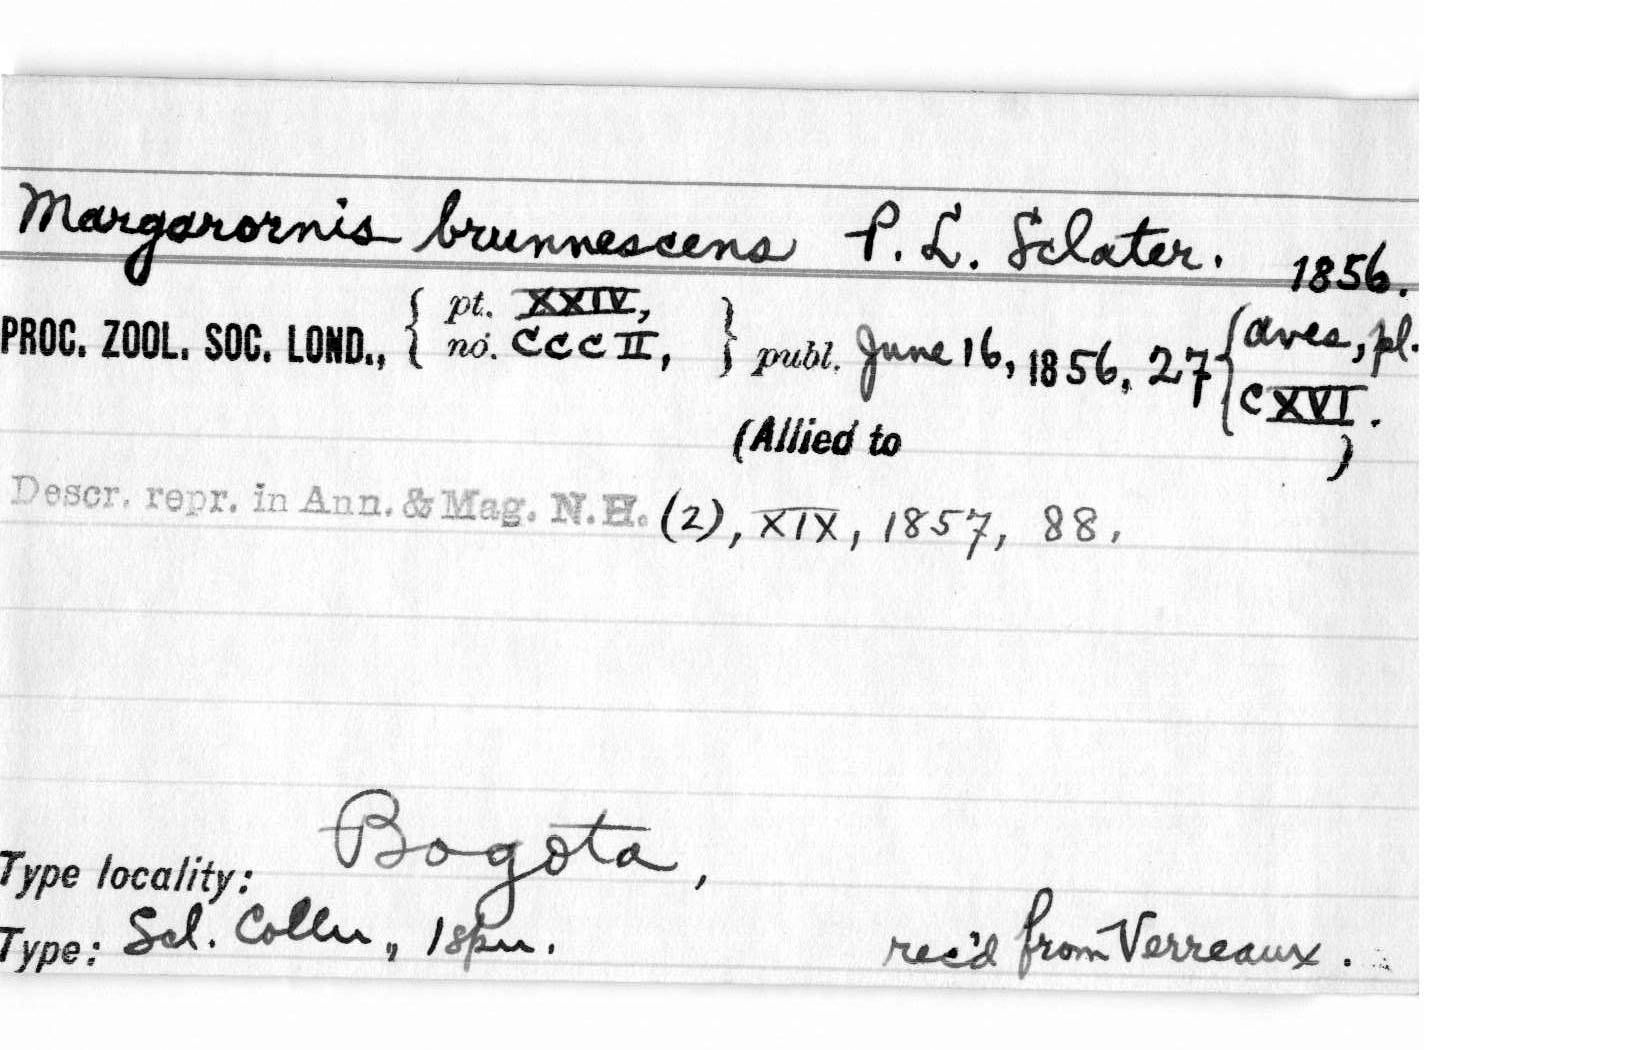 Margarornis brunnescens P. L. Sclater. 1856.
PROC. ZOOL. SOC. LOND., { pt. XXIV, no. CCCII, } publ. June 16, 1856, 27 { Aves, pl. CXVI.
(Allied to )
Descr. repr. in Ann. & Mag. N.H. (2), XIX, 1857, 88,
Type locality: Bogota,
Type: Scl. Colln., 1 spn. rec'd from Verreaux.